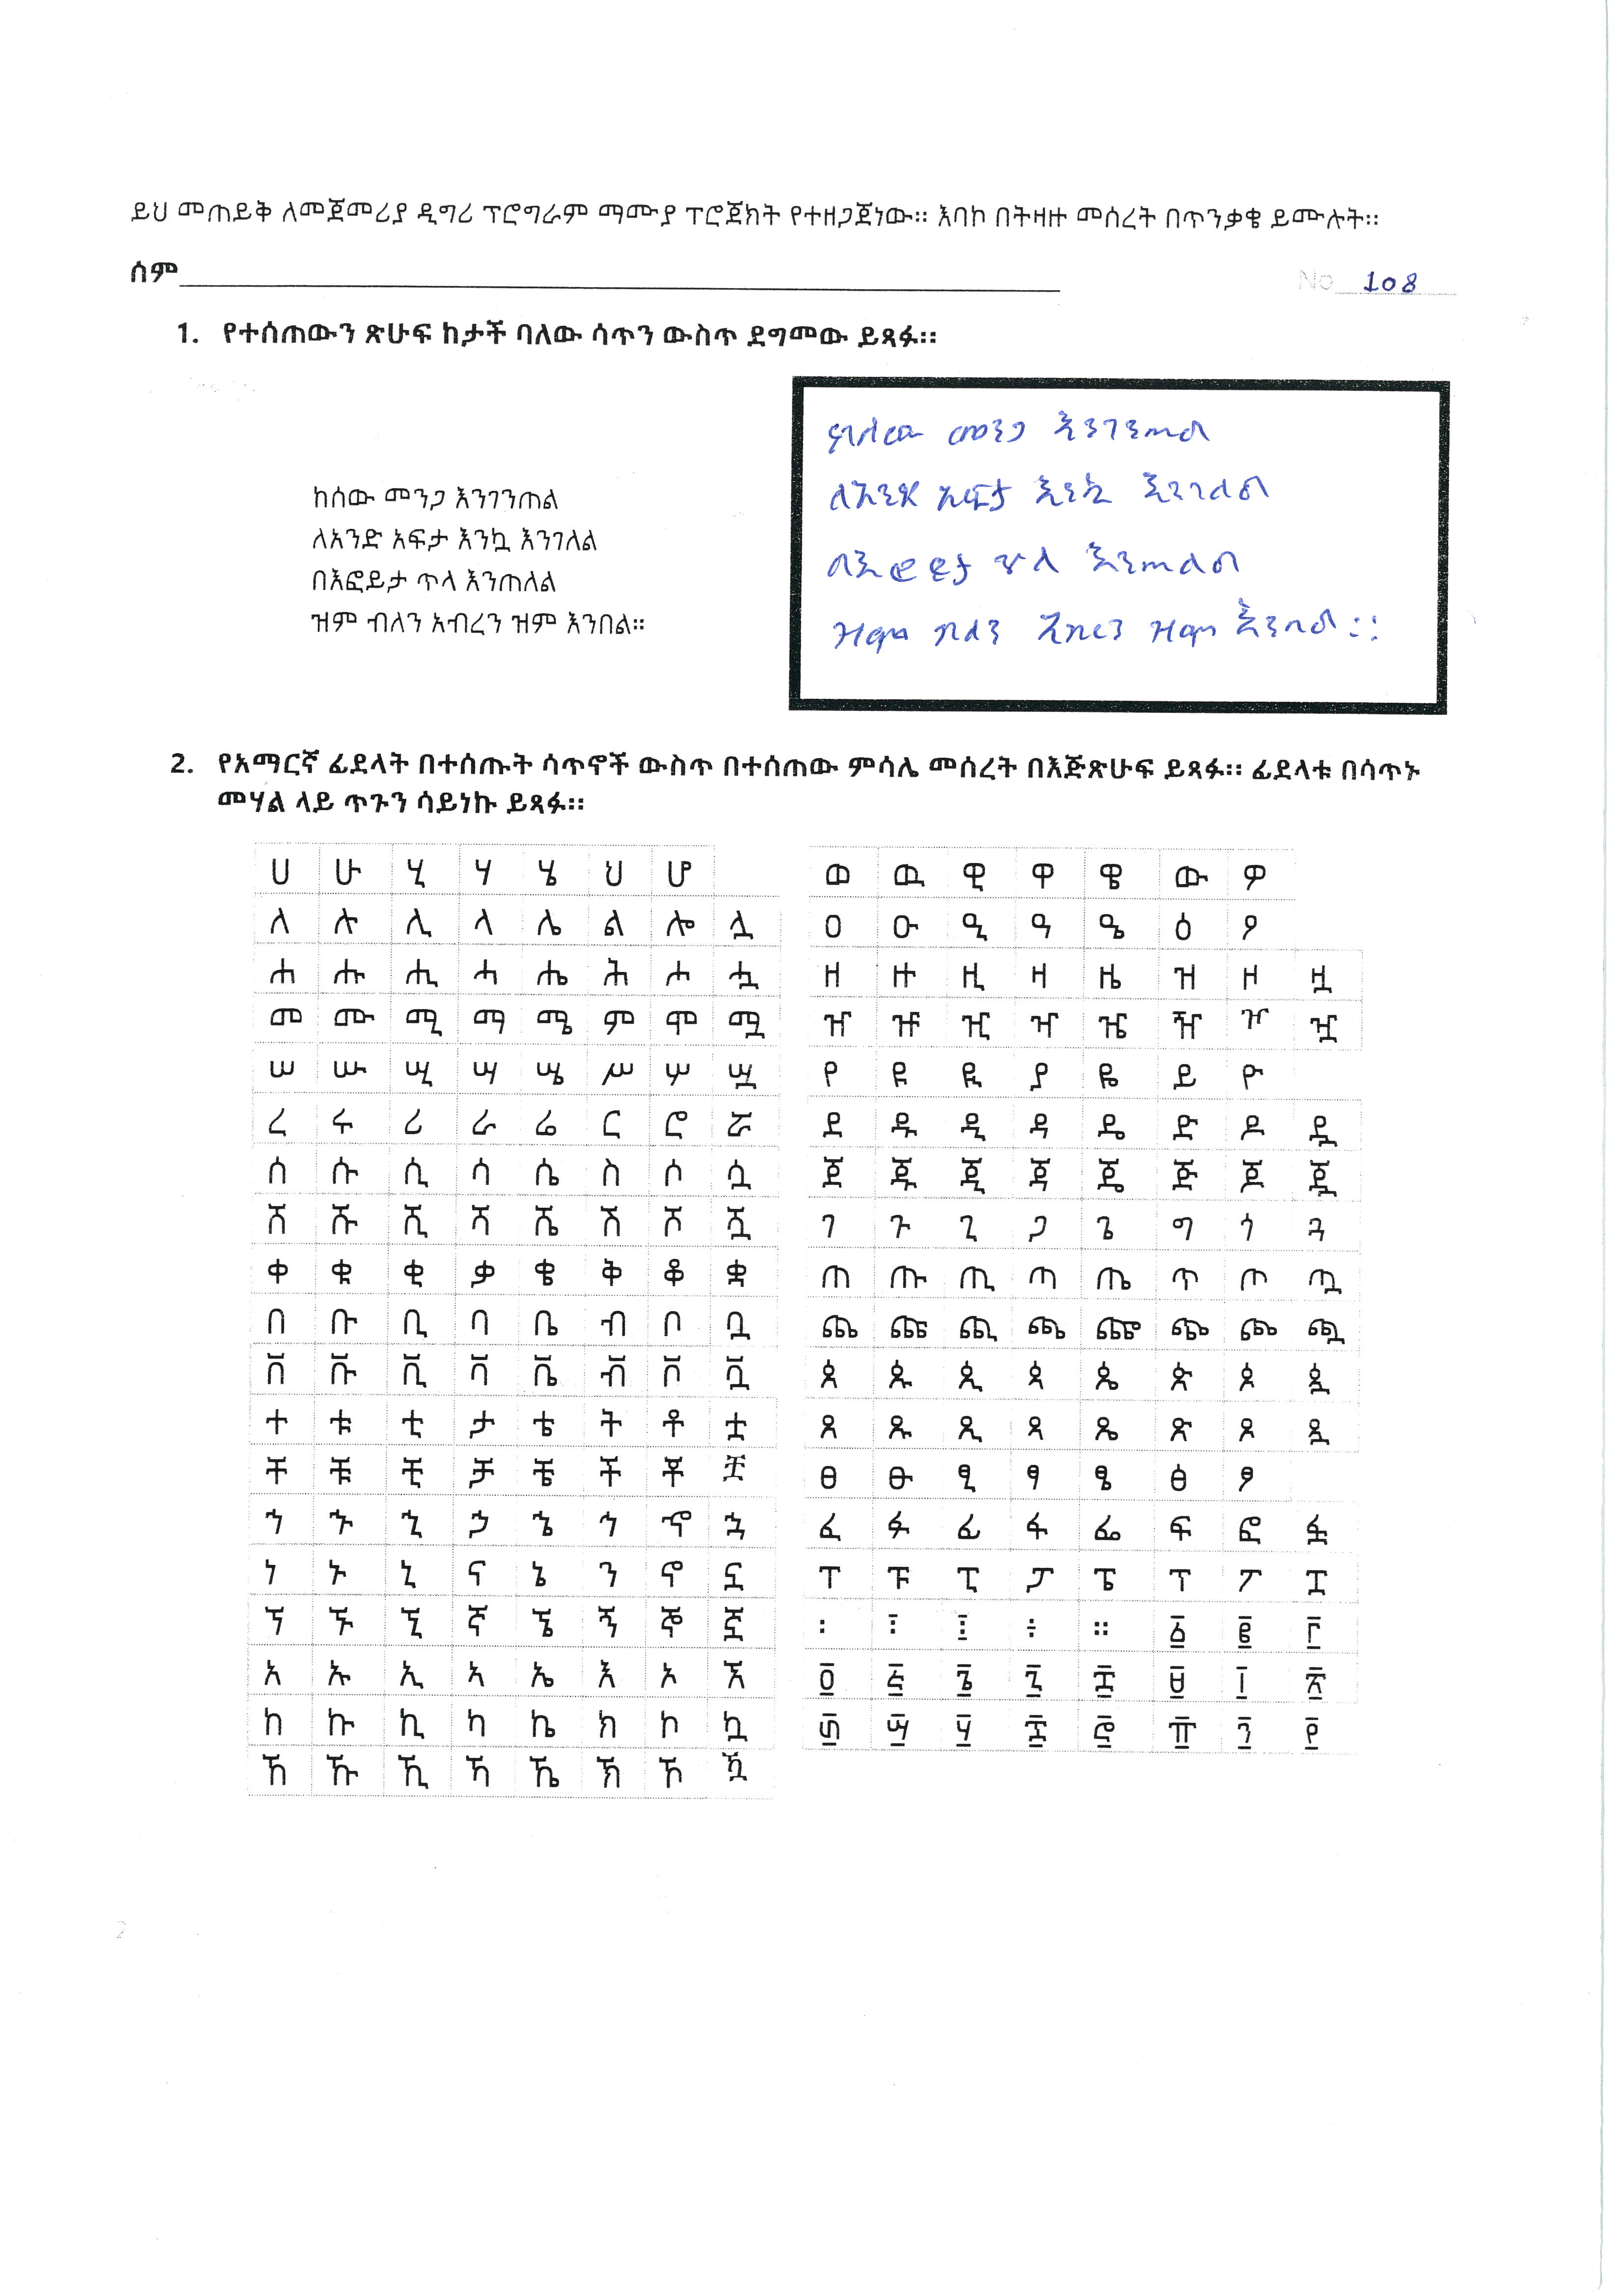 ይህ መጠይቅ ለመጀመሪያ ዲግሪ ፕሮግራም ማሙያ ፕሮጀክት የተዘጋጀነው። እባኮ በትዛዙ መሰረት በጥንቃቄ ይሙሉት።
ሰም
No 108
1. የተሰጠውን ጽሁፍ ከታች ባለው ሳጥን ውስጥ ደግመው ይጻፉ።
ከሰው መንጋ እንገንጠል
ለአንድ አፍታ እንኳ እንገለል
በእፎይታ ጥላ እንጠለል
ዝም ብለን አብረን ዝም እንበል።
ከሰው መንጋ እንገንጠል
ለአንድ አፍታ እንኳ እንገለል
በእፎይታ ጥላ እንጠለል
ዝም ብለን አብረን ዝም እንበል።
2. የአማርኛ ፊደላት በተሰጡት ሳጥኖች ውስጥ በተሰጠው ምሳሌ መሰረት በእጅጽሁፍ ይጻፉ። ፊደላቱ በሳጥኑ
መሃል ላይ ጥጉን ሳይነኩ ይጻፉ።
ሀ ሁ ሂ ሃ ሄ ህ ሆ
ለ ሉ ሊ ላ ሌ ል ሎ ሏ
ሐ ሑ ሒ ሓ ሔ ሕ ሖ ሗ
መ ሙ ሚ ማ ሜ ም ሞ ሟ
ሠ ሡ ሢ ሣ ሤ ሥ ሦ ሧ
ረ ሩ ሪ ራ ሬ ር ሮ ሯ
ሰ ሱ ሲ ሳ ሴ ስ ሶ ሷ
ሸ ሹ ሺ ሻ ሼ ሽ ሾ ሿ
ቀ ቁ ቂ ቃ ቄ ቅ ቆ ቋ
በ ቡ ቢ ባ ቤ ብ ቦ ቧ
ቨ ቩ ቪ ቫ ቬ ቭ ቮ ቯ
ተ ቱ ቲ ታ ቴ ት ቶ ቷ
ቸ ቹ ቺ ቻ ቼ ች ቾ ቿ
ኀ ኁ ኂ ኃ ኄ ኅ ኆ ኋ
ነ ኑ ኒ ና ኔ ን ኖ ኗ
ኘ ኙ ኚ ኛ ኜ ኝ ኞ ኟ
አ ኡ ኢ ኣ ኤ እ ኦ ኧ
ከ ኩ ኪ ካ ኬ ክ ኮ ኳ
ኸ ኹ ኺ ኻ ኼ ኽ ኾ ዃ
ወ ዉ ዊ ዋ ዌ ው ዎ
ዐ ዑ ዒ ዓ ዔ ዕ ዖ
ዘ ዙ ዚ ዛ ዜ ዝ ዞ ዟ
ዠ ዡ ዢ ዣ ዤ ዥ ዦ ዧ
የ ዩ ዪ ያ ዬ ይ ዮ
ደ ዱ ዲ ዳ ዴ ድ ዶ ዷ
ጀ ጁ ጂ ጃ ጄ ጅ ጆ ጇ
ገ ጉ ጊ ጋ ጌ ግ ጎ ጓ
ጠ ጡ ጢ ጣ ጤ ጥ ጦ ጧ
ጨ ጩ ጪ ጫ ጬ ጭ ጮ ጯ
ጰ ጱ ጲ ጳ ጴ ጵ ጶ ጷ
ጸ ጹ ጺ ጻ ጼ ጽ ጾ ጿ
ፀ ፁ ፂ ፃ ፄ ፅ ፆ
ፈ ፉ ፊ ፋ ፌ ፍ ፎ ፏ
ፐ ፑ ፒ ፓ ፔ ፕ ፖ ፗ
፡ ፣ ፤ ÷ ። ፩ ፪ ፫
፬ ፭ ፮ ፯ ፰ ፱ ፲ ፳
፴ ፵ ፶ ፷ ፸ ፹ ፺ ፻